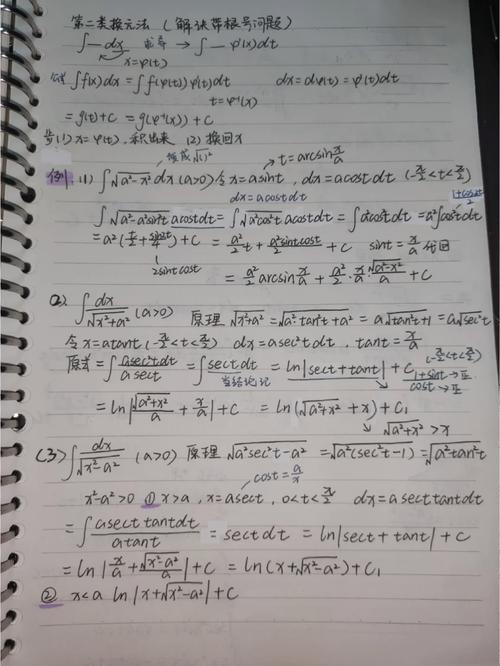 第二类换元法 (解决带根号问题)
∫—dx 求导 → ∫— φ'(x)dt
x=φ(t)
公式 ∫f(x)dx = ∫f(φ(t))φ'(t)dt dx=dφ(t)=φ'(t)dt
t=φ⁻¹(x)
= g(t)+C = g(φ⁻¹(x))+C
步(1) x=φ(t), 积出来 (2) 换回x
换成√()² → t=arcsin x/a
例: (1) ∫√a²-x² dx (a>0) 令x=asint, dx=acostdt (-π/2<t<π/2)
dx=acostdt 1+cos2t/2
∫√a²-a²sin²t acostdt = ∫√a²cos²t acostdt = ∫a²cos²tdt = a²∫cos²tdt
= a²(t/2+sin2t/4)+C = a²/2 t + a²sintcost/2 + C sint=x/a 代回
2sintcost
= a²/2 arcsin x/a + a²/2 · x/a · √a²-x²/a + C
(2). ∫dx/√x²+a² (a>0) 原理 √x²+a² = √a²tan²t+a² = a√tan²t+1 = a√sec²t
令x=atant (-π/2<t<π/2) dx=asec²tdt, tant=x/a
(-π/2<t<π/2)
原式=∫asec²tdt/asect = ∫sectdt = ln|sect+tant|+C 1+sint→正/cost→正
当结论记
= ln|√a²+x²/a + x/a|+C = ln(√a²+x²+x)+C₁
↘ √a²+x²>x
(3) ∫dx/√x²-a² (a>0) 原理 √a²sec²t-a² = √a²(sec²t-1) = √a²tan²t
cost=a/x
x²-a²>0 ① x>a, x=asect, 0<t<π/2 dx=asecttantdt
= ∫asecttantdt/atant = sectdt = ln|sect+tant|+C
= ln|x/a+√x²-a²/a|+C = ln(x+√x²-a²)+C₁
② x<a ln|x+√x²-a²|+C